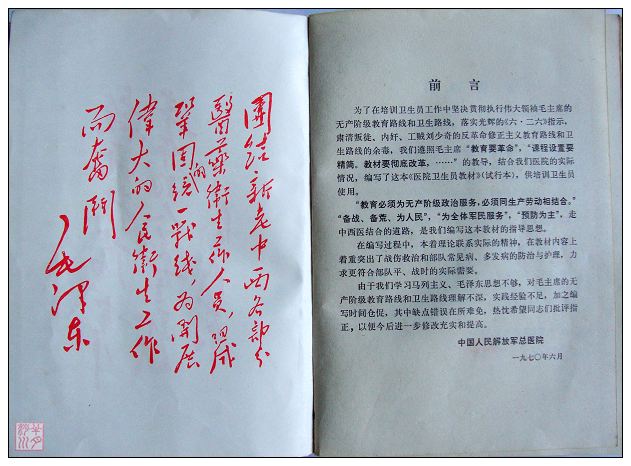 團结新老中西各部分
醫藥衛生工作人員，组成
鞏固的统一戰线，为開展
偉大的人民衛生工作
而奮鬥
毛泽东
前言
为了在培训卫生员工作中坚决贯彻执行伟大领袖毛主席的
无产阶级教育路线和卫生路线，落实光辉的《六·二六》指示，
肃清叛徒、内奸、工贼刘少奇的反革命修正主义教育路线和卫
生路线的余毒，我们遵照毛主席“教育要革命”，“课程设置要
精简。教材要彻底改革，……”的教导，结合我们医院的实际
情况，编写了这本《医院卫生员教材》（试行本），供培训卫生员
使用。
“教育必须为无产阶级政治服务，必须同生产劳动相结合。”
“备战、备荒、为人民”，“为全体军民服务”，“预防为主”，走
中西医结合的道路，是我们编写这本教材的指导思想。
在编写过程中，本着理论联系实际的精神，在教材内容上
着重突出了战伤救治和部队常见病、多发病的防治与护理，力
求更符合部队平、战时的实际需要。
由于我们学习马列主义、毛泽东思想不够，对毛主席的无
产阶级教育路线和卫生路线理解不深，实践经验不足，加之编
写时间仓促，其中缺点错误在所难免，热忱希望同志们批评指
正，以便今后进一步修改充实和提高。
中国人民解放军总医院
一九七〇年六月